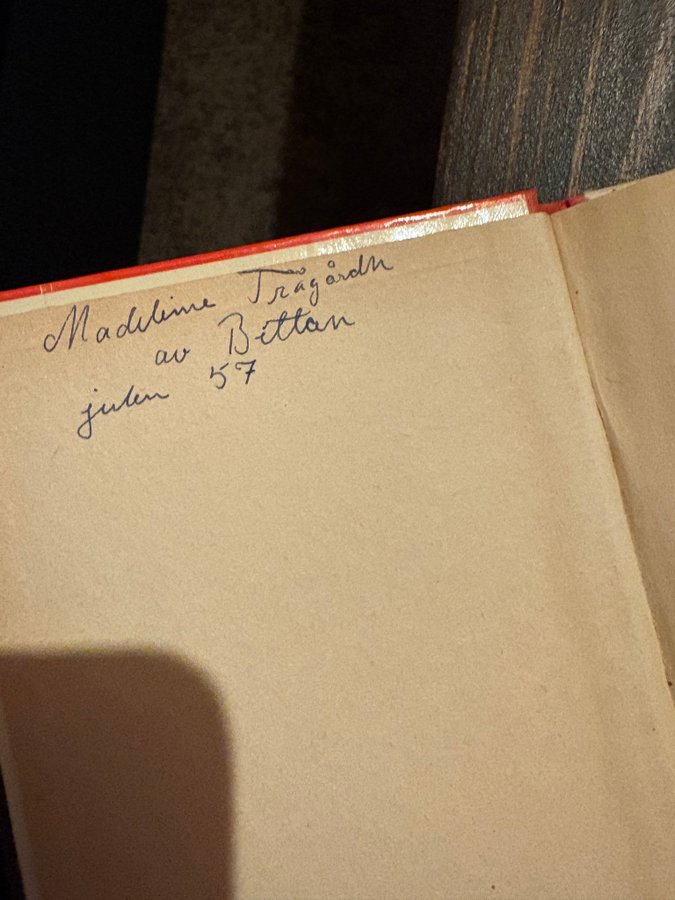 Madeleine Trägårdh
av Bettan
julen 57